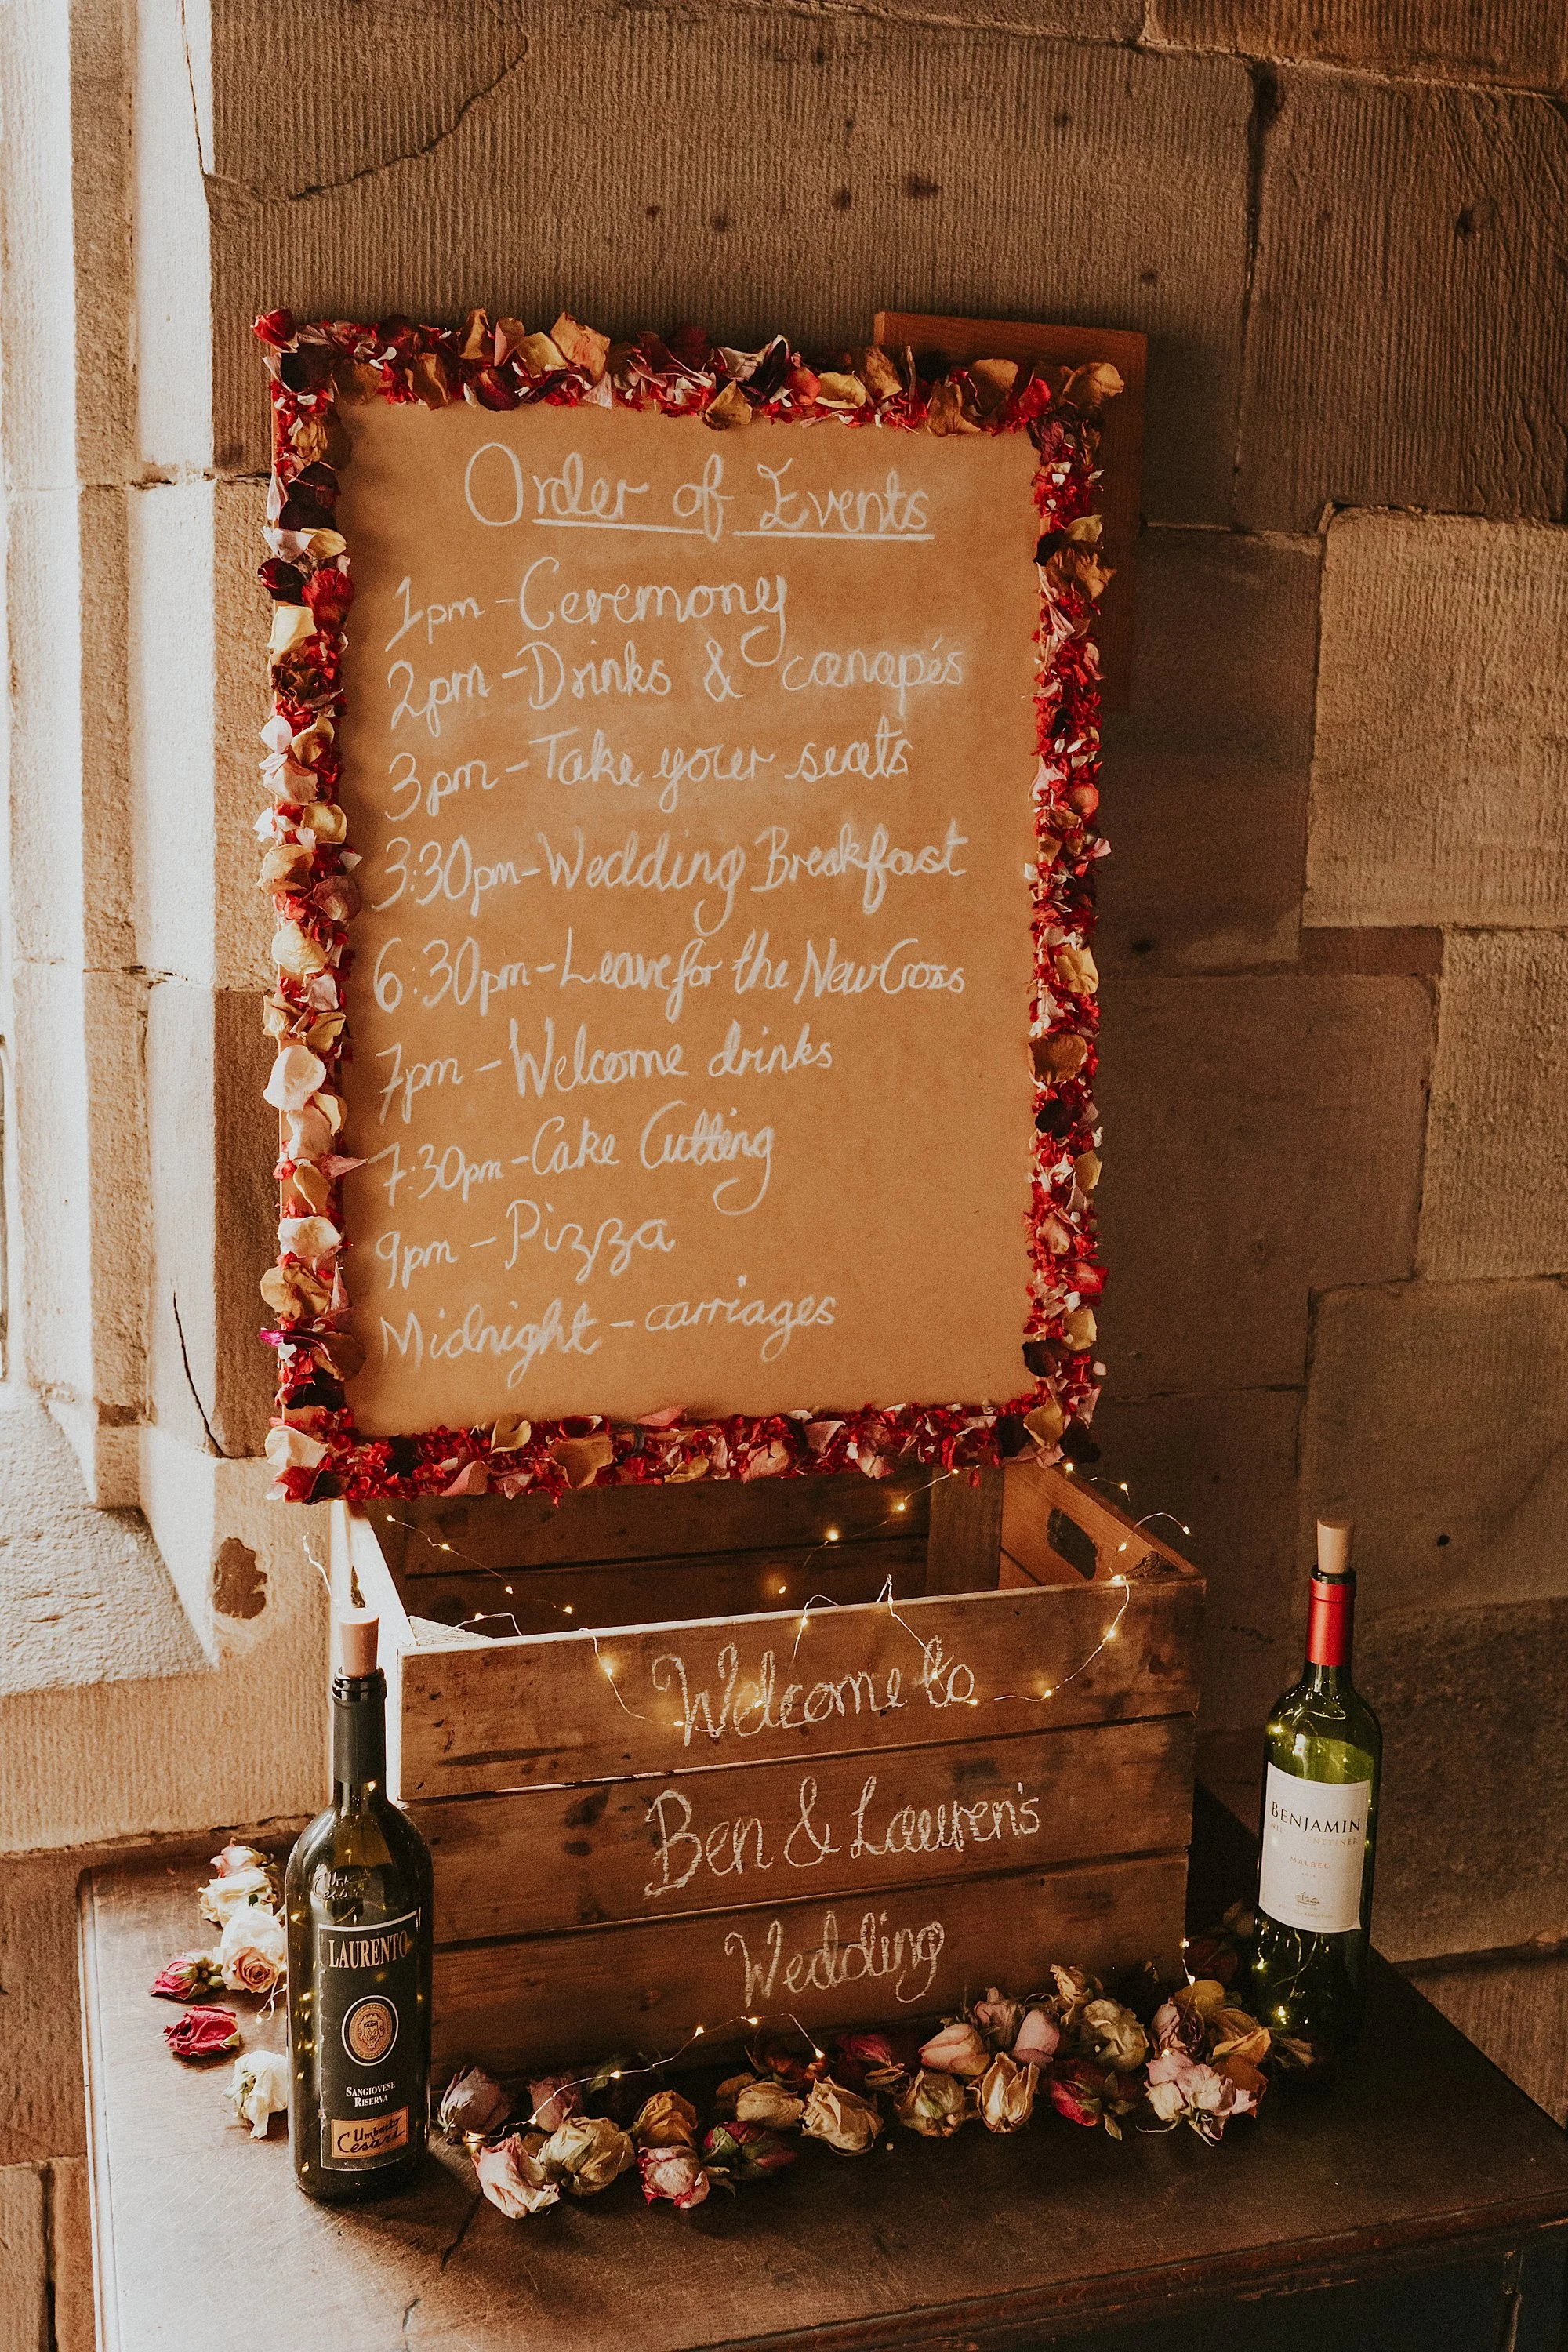 Order of Events
1pm - Ceremony
2pm - Drinks & canapés
3pm - Take your seats
3:30pm - Wedding Breakfast
6:30pm - Leave for the New Cross
7pm - Welcome drinks
7:30pm - Cake Cutting
9pm - Pizza
Midnight - carriages
Welcome to
Ben & Lauren's
Wedding
LAURENTO
SANGIOVESE
RISERVA
Umberto
Cesari
BENJAMIN
MALBEC